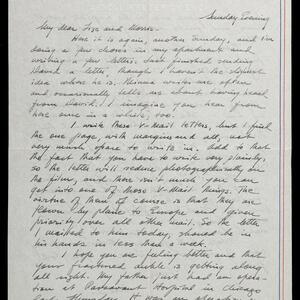 Sunday Evening
My dear Lise and Morris-
Here it is again, another Sunday, and I'm
doing a few chores in my apartment and
writing a few letters. Just finished sending
David a letter, though I haven't the slightest
idea where he is. Minna writes me often
and occasionally tells me about having heard
from David. I imagine you hear from
him once in a while, too.
I wrote these V-Mail letters, but I find
the one page with margins and all, not
very much space to write in. Add to that
the fact that you have to write very plainly,
so the letter will reduce photographically on
the films, and there isn't much you can
get into one of those V-Mail things. The
virtue of them of course is that they are
flown by plane to Europe and given
priority over all other mail. So the letter
I mailed to him today, should be in
his hands in less than a week.
I hope you are feeling better and that
your fractured ankle is getting along
all right. My father just had an opera-
tion at Passavant Hospital in Chicago
last Thursday. It was an